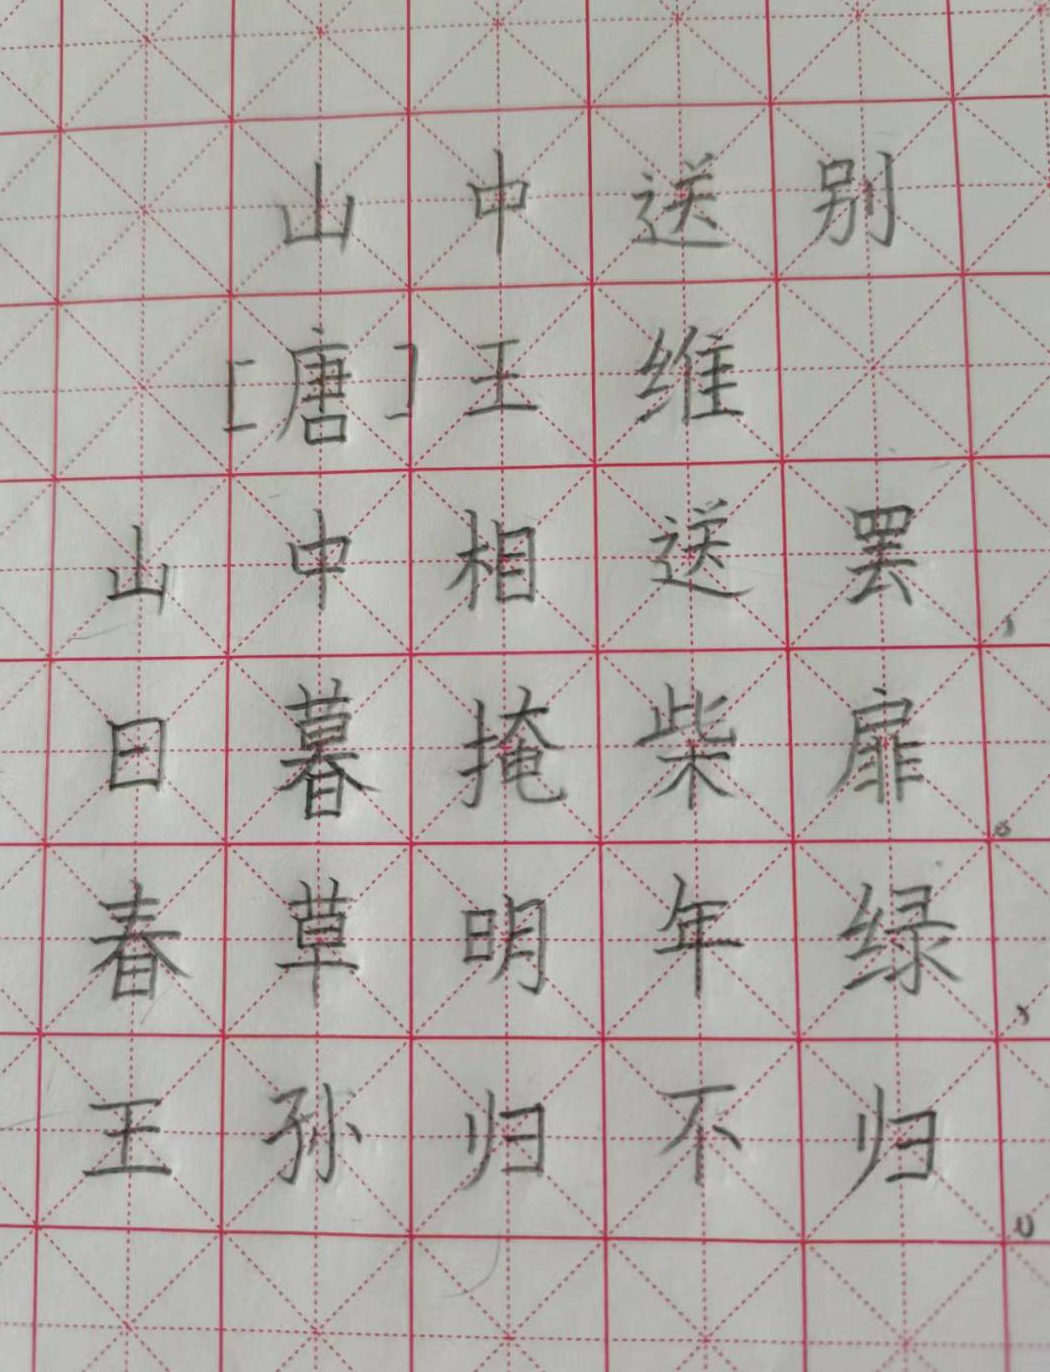 山中送别
[唐]王维
山中相送罢，
日暮掩柴扉。
春草明年绿，
王孙归不归。